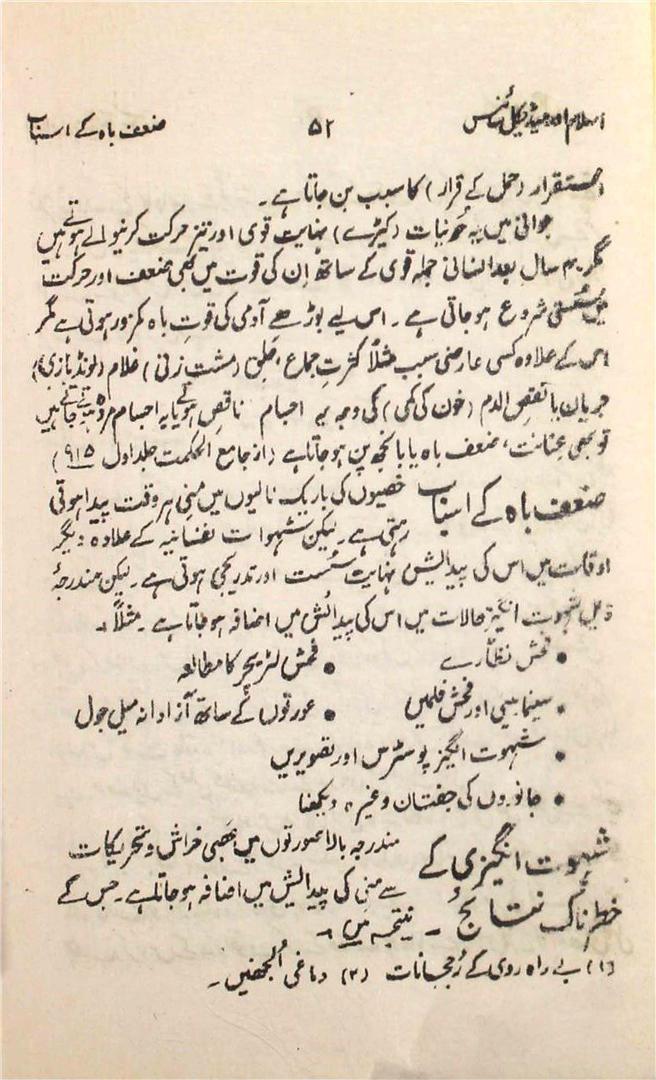 اسلام اور میڈیکل سائنس ۵۲ ضعف باہ کے اسباب
استقرار (حمل کے قرار) کا سبب بن جاتا ہے۔
جوانی میں یہ حُونیات (کیڑے) نہایت قوی اور تیز حرکت کرنیوالے ہوتے ہیں
مگر ۴۰ سال بعد انسانی جملہ قویٰ کے ساتھ اِن کی قوت میں بھی ضعف اور حرکت
میں سُستی شروع ہو جاتی ہے۔ اس لیے بوڑھے آدمی کی قوتِ باہ کمزور ہوتی ہے مگر
اس کے علاوہ کسی عارضی سبب مثلاً کثرتِ جماع، جلق (مشت زنی) غلام (لونڈبازی)
جریان یا نقص الدم (خون کی کمی) کی وجہ یہ اجسام ناقص ہوتے یا یہ اجسام مردہ ہوتے جاتے ہیں
تو بھی عنانت، ضعف باہ یا بانجھ پن ہو جاتا ہے (از جامع الحکمت جلد اول ۹۱۵)
ضعف باہ کے اسباب خصیوں کی باریک نالیوں میں منی ہر وقت پیدا ہوتی
رہتی ہے۔ لیکن شہوات نفسانیہ کے علاوہ دیگر
اوقات میں اس کی پیدائش نہایت سُست اور تدریجی ہوتی ہے۔ لیکن مندرجۂ
ذیل شہوت انگیز حالات میں اس کی پیدائش میں اضافہ ہو جاتا ہے۔ مثلاً:۔
• فحش نظارے • فحش لٹریچر کا مطالعہ
• سینما بینی اور فحش فلمیں • عورتوں کے ساتھ آزادانہ میل جول
• شہوت انگیز پوسٹرس اور تصویریں
• جانوروں کی جفتان وغیرہ دیکھنا
شہوت انگیزی کے مندرجہ بالا صورتوں میں بھی خراش و تحریکات
خطرناک نتائج ۔ سے منی کی پیدائش میں اضافہ ہو جاتا ہے۔ جس کے
نتیجہ میں:۔
(۱) بے راہ روی کے رُجحانات (۲) دماغی اُلجھنیں۔